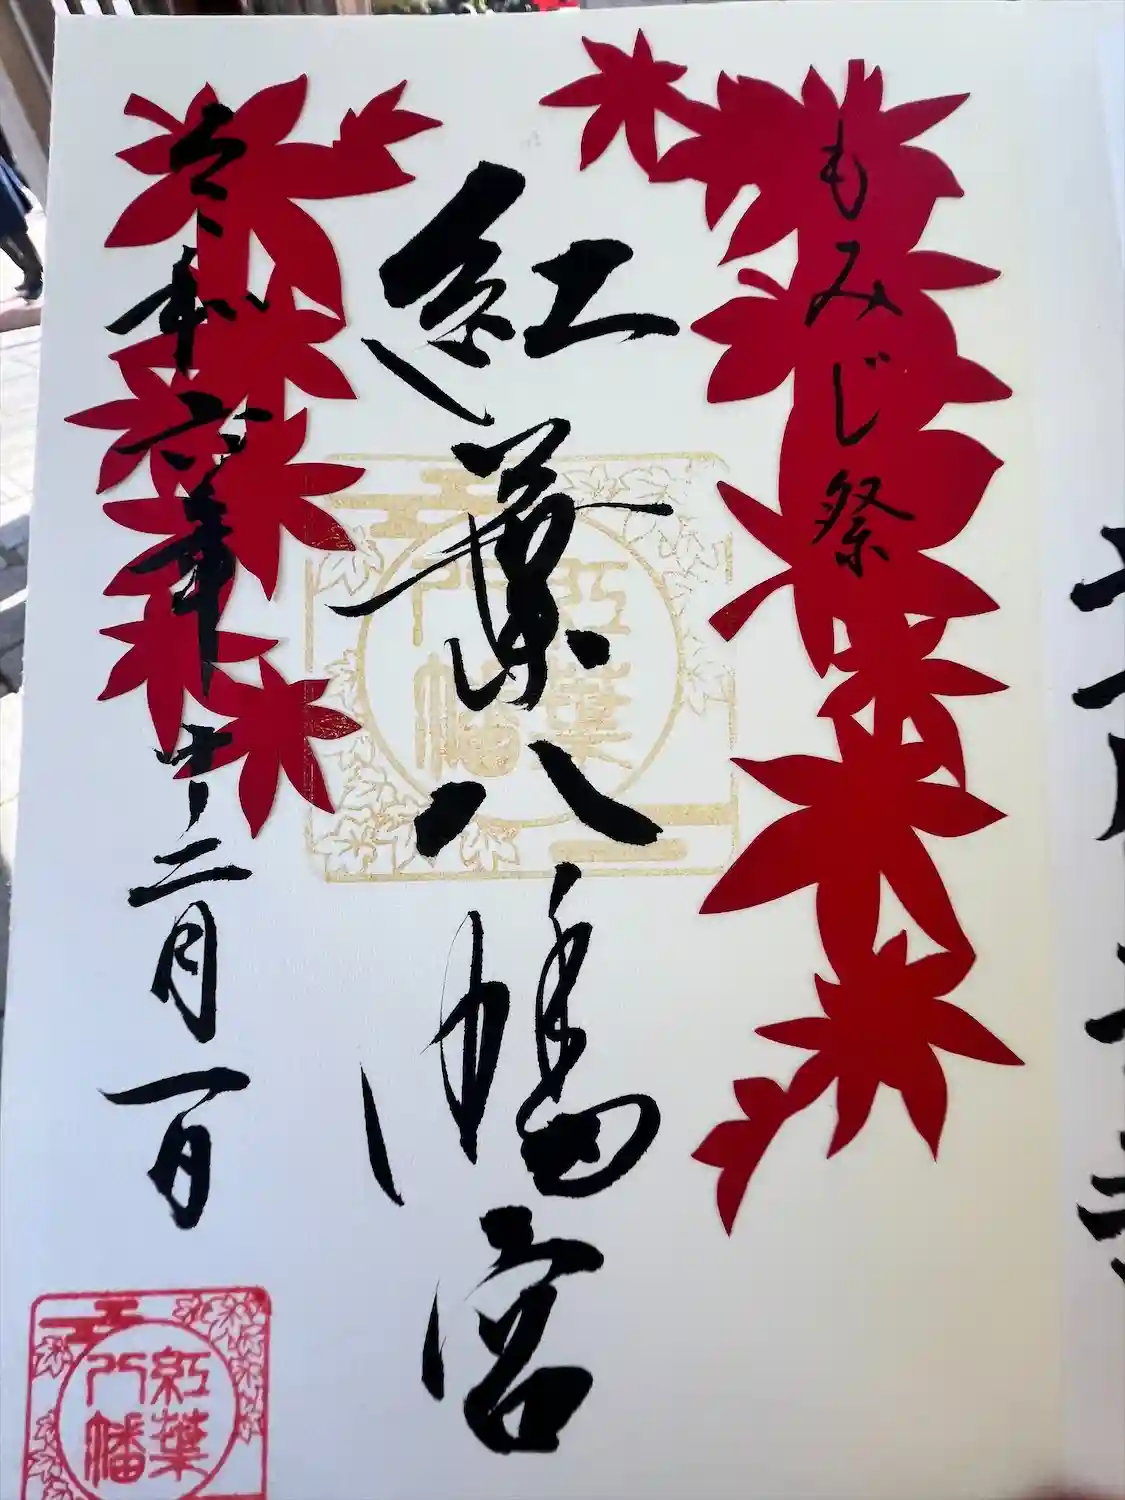 もみじ祭
紅葉八幡宮
令和六年十二月一日
紅葉
八幡
紅葉
八幡